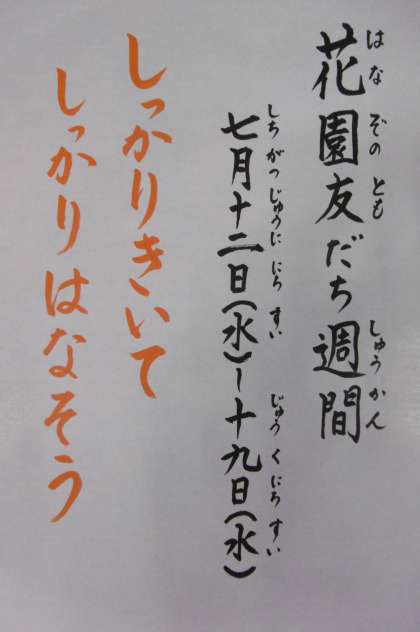 花園友だち週間
はなぞのとも しゅうかん
七月十二日(水)~十九日(水)
しちがつじゅうににちすい じゅうくにちすい
しっかりきいて
しっかりはなそう